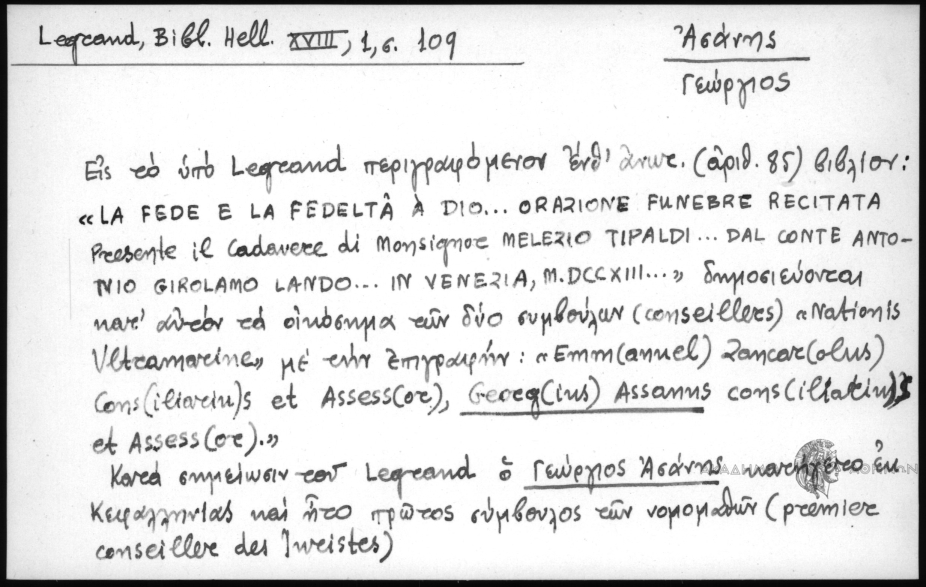 Legrand, Bibl. Hell. XVIII, 1, σ. 109
Ἀσάνης
Γεώργιος
Εἰς τὸ ὑπὸ Legrand περιγραφόμενον ἔνθ' ἀνωτ. (ἀριθ. 85) βιβλίον:
«LA FEDE E LA FEDELTÂ À DIO... ORAZIONE FUNEBRE RECITATA
Presente il Cadavere di Monsignor MELEZIO TIPALDI... DAL CONTE ANTO-
NIO GIROLAMO LANDO... IN VENEZIA, M.DCCXIII...» δημοσιεύονται
κατ' αὐτὸν τὰ οἰκόσημα τῶν δύο συμβούλων (conseillers) «Nationis
Vltramarine» μὲ τὴν ἐπιγραφήν: «Emm(anuel) Zancar(olus)
Cons(iliariu)s et Assess(or), Georg(ius) Assanus cons(iliariu)s
et Assess(or).»
Κατὰ σημείωσιν τοῦ Legrand ὁ Γεώργιος Ἀσάνης κατήγετο ἐκ
Κεφαλληνίας καὶ ἦτο πρῶτος σύμβουλος τῶν νομομαθῶν (premier
conseiller des Juristes)